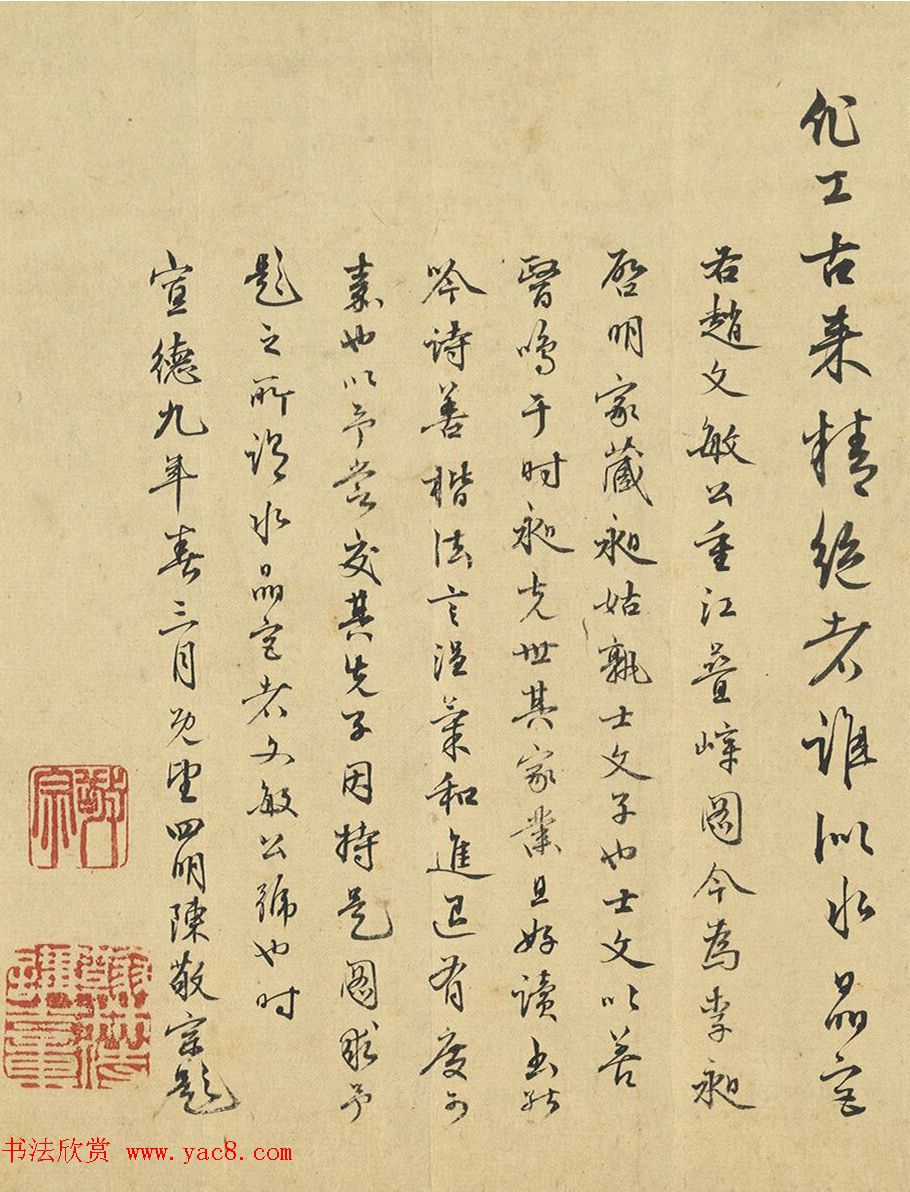 化工古来精绝者谁似水晶宫
右趙文敏公重江疊嶂圖今為李昶
啓明家藏昶姑孰士文子也士文以善
醫鳴于时昶克世其家業且好读书能
吟诗善楷法言温氣和進退有度可
嘉也以予尝交其先子因持是圖求予
题之所谓水晶宫者文敏公號也时
宣德九年春三月既望四明陳敬宗题
敬宗
书法欣赏 www.yac8.com